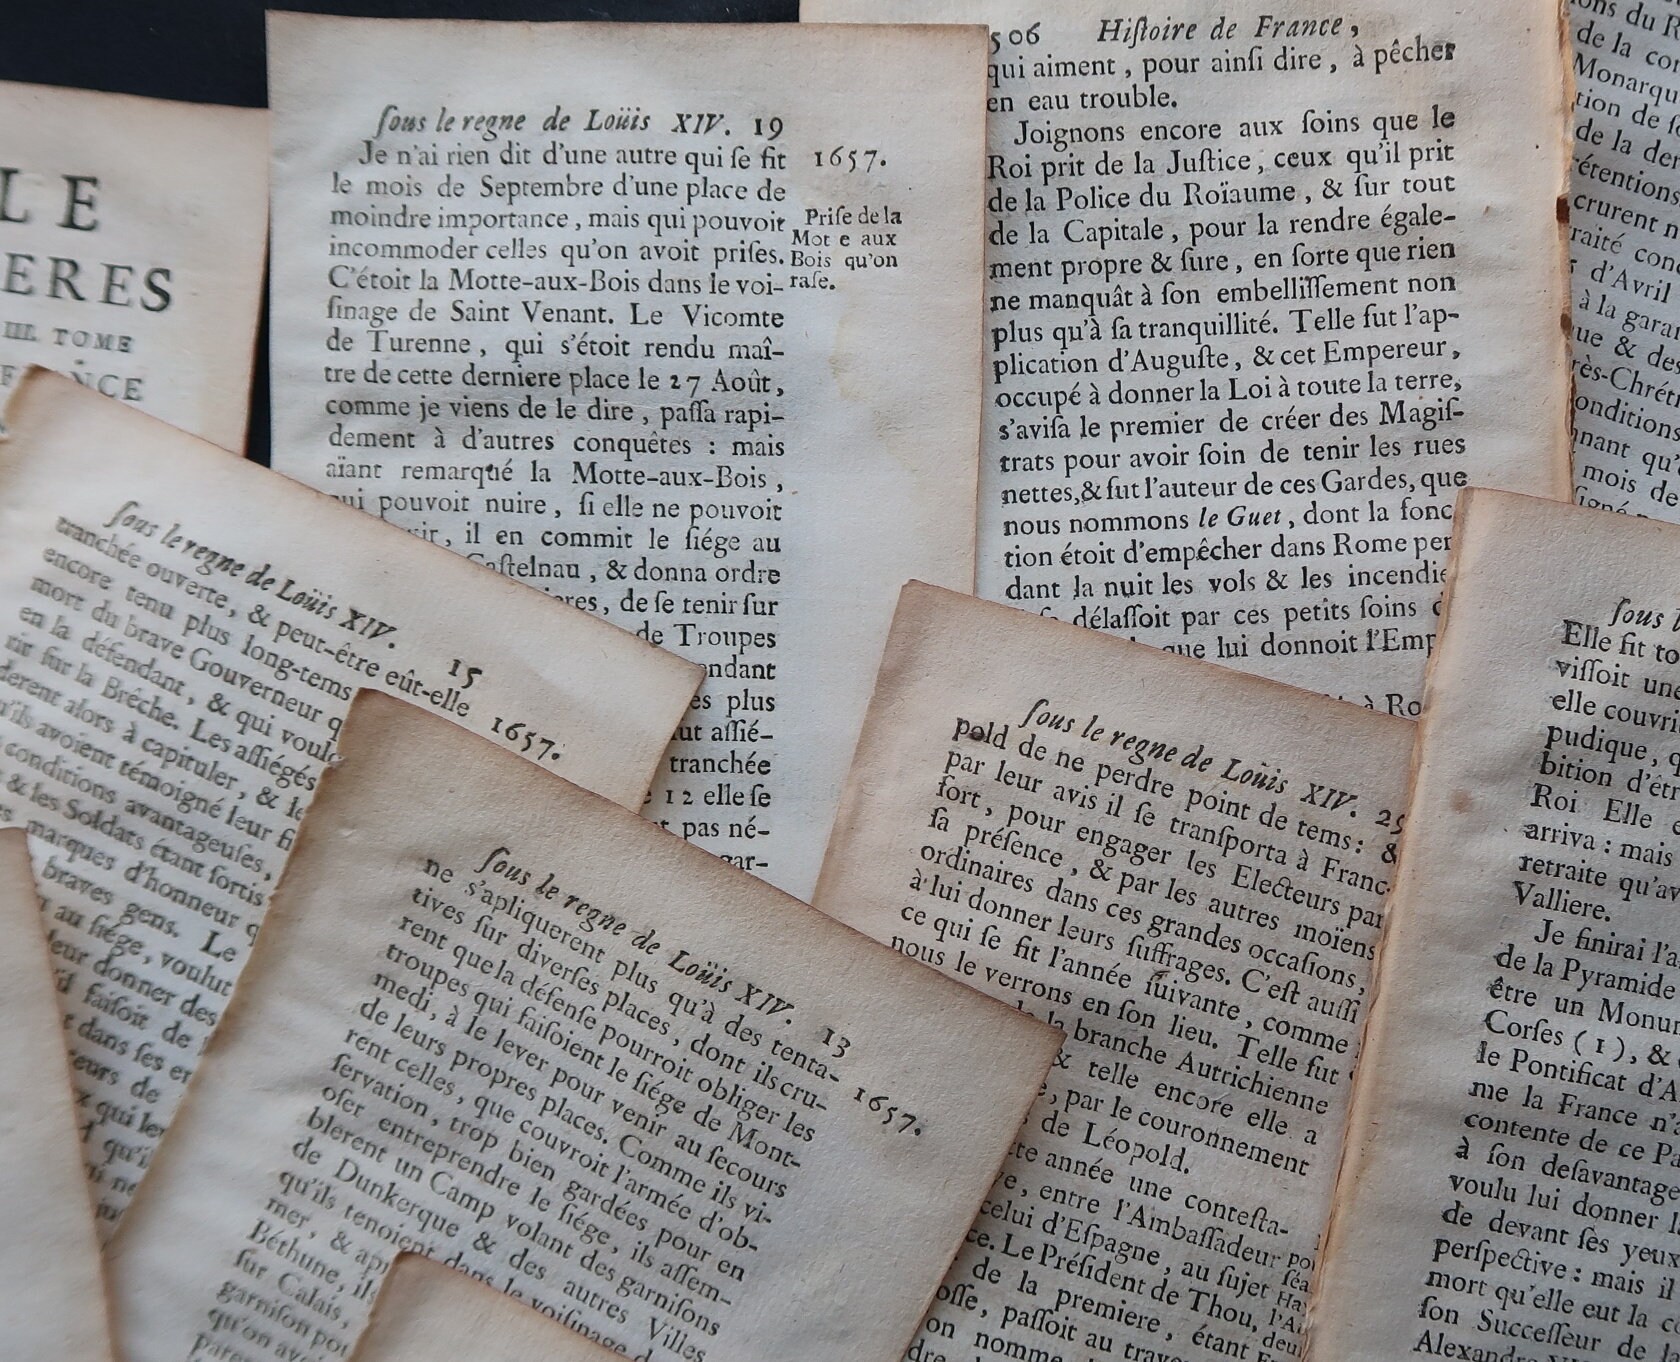 LE
ERES
III. TOME
FRANCE
ſous le regne de Loüis XIV. 19
Je n'ai rien dit d'une autre qui ſe fit
le mois de Septembre d'une place de
moindre importance, mais qui pouvoit
incommoder celles qu'on avoit priſes.
C'étoit la Motte-aux-Bois dans le voi-
ſinage de Saint Venant. Le Vicomte
de Turenne, qui s'étoit rendu maî-
tre de cette derniere place le 27 Août,
comme je viens de le dire, paſſa rapi-
dement à d'autres conquêtes : mais
aïant remarqué la Motte-aux-Bois,
qui pouvoit nuire, ſi elle ne pouvoit
il en commit le ſiége au
Caſtelnau, & donna ordre
de ſe tenir ſur
de Troupes
plus
aſſié-
tranchée
12 elle ſe
pas né-
gar-
1657.
Priſe de la
Mot e aux
Bois qu'on
raſe.
506 Hiſtoire de France,
qui aiment, pour ainſi dire, à pêcher
en eau trouble.
Joignons encore aux ſoins que le
Roi prit de la Juſtice, ceux qu'il prit
de la Police du Roïaume, & ſur tout
de la Capitale, pour la rendre égale-
ment propre & ſure, en ſorte que rien
ne manquât à ſon embelliſſement non
plus qu'à ſa tranquillité. Telle fut l'ap-
plication d'Auguſte, & cet Empereur,
occupé à donner la Loi à toute la terre,
s'aviſa le premier de créer des Magiſ-
trats pour avoir ſoin de tenir les rues
nettes, & fut l'auteur de ces Gardes, que
nous nommons le Guet, dont la fonc
tion étoit d'empêcher dans Rome pen
dant la nuit les vols & les incendie
délaſſoit par ces petits ſoins
que lui donnoit l'Emp
à Ro
ons du R
de la con
Monarqu
tion de ſ
de la der
rétentions
crurent n
raité con
d'Avril
à la garan
que & des
rès-Chréti
onditions
nant qu'
mois de
ſigné
ſous le regne de Loüis XIV. 15
tranchée ouverte, & peut-être eût-elle
encore tenu plus long-tems
mort du brave Gouverneur q
en la défendant, & qui voul
rir ſur la Brêche. Les aſſiégés
derent alors à capituler, & le
qu'ils avoient témoigné leur fi
conditions avantageuſes,
& les Soldats étant ſortis
marques d'honneur q
braves gens. Le
au ſiége, voulut
leur donner des
il faiſoit de
dans ſes
de
qui
1657.
ſous le regne de Loüis XIV. 13
ne s'apliquerent plus qu'à des tenta-
tives ſur diverſes places, dont ils cru-
rent que la défenſe pourroit obliger les
troupes qui faiſoient le ſiége de Mont-
medi, à le lever pour venir au ſecours
de leurs propres places. Comme ils vi-
rent celles, que couvroit l'armée d'ob-
ſervation, trop bien gardées pour en
oſer entreprendre le ſiége, ils aſſem-
blerent un Camp volant des garniſons
de Dunkerque & des autres Villes
qu'ils tenoient dans le voiſinage d
mer, &
Béthune, ils
ſur Calais,
garniſon
qu'on
1657.
ſous le regne de Loüis XIV. 25
pold de ne perdre point de tems : &
par leur avis il ſe tranſporta à Franc-
fort, pour engager les Electeurs par
ſa préſence, & par les autres moïens
ordinaires dans ces grandes occaſions,
à lui donner leurs ſuffrages. C'eſt auſſi
ce qui ſe fit l'année ſuivante, comme
nous le verrons en ſon lieu. Telle fut
la branche Autrichienne
& telle encore elle a
, par le couronnement
de Léopold.
année une conteſta-
, entre l'Ambaſſadeur
celui d'Eſpagne, au ſujet
Le Préſident de Thou,
de la premiere, étant
paſſoit au
on
ſous l
Elle fit to
viſſoit une
elle couvri
pudique, q
bition d'êt
Roi. Elle e
arriva : mais
retraite qu'av
Valliere.
Je finirai l'a
de la Pyramide
être un Monum
Corſes (1), &
le Pontificat d'A
me la France n'a
contente de ce Pa
à ſon deſavantage
voulu lui donner l
de devant ſes yeux
perſpective : mais il
mort qu'elle eut la c
ſon Succeſſeur de
Alexandre